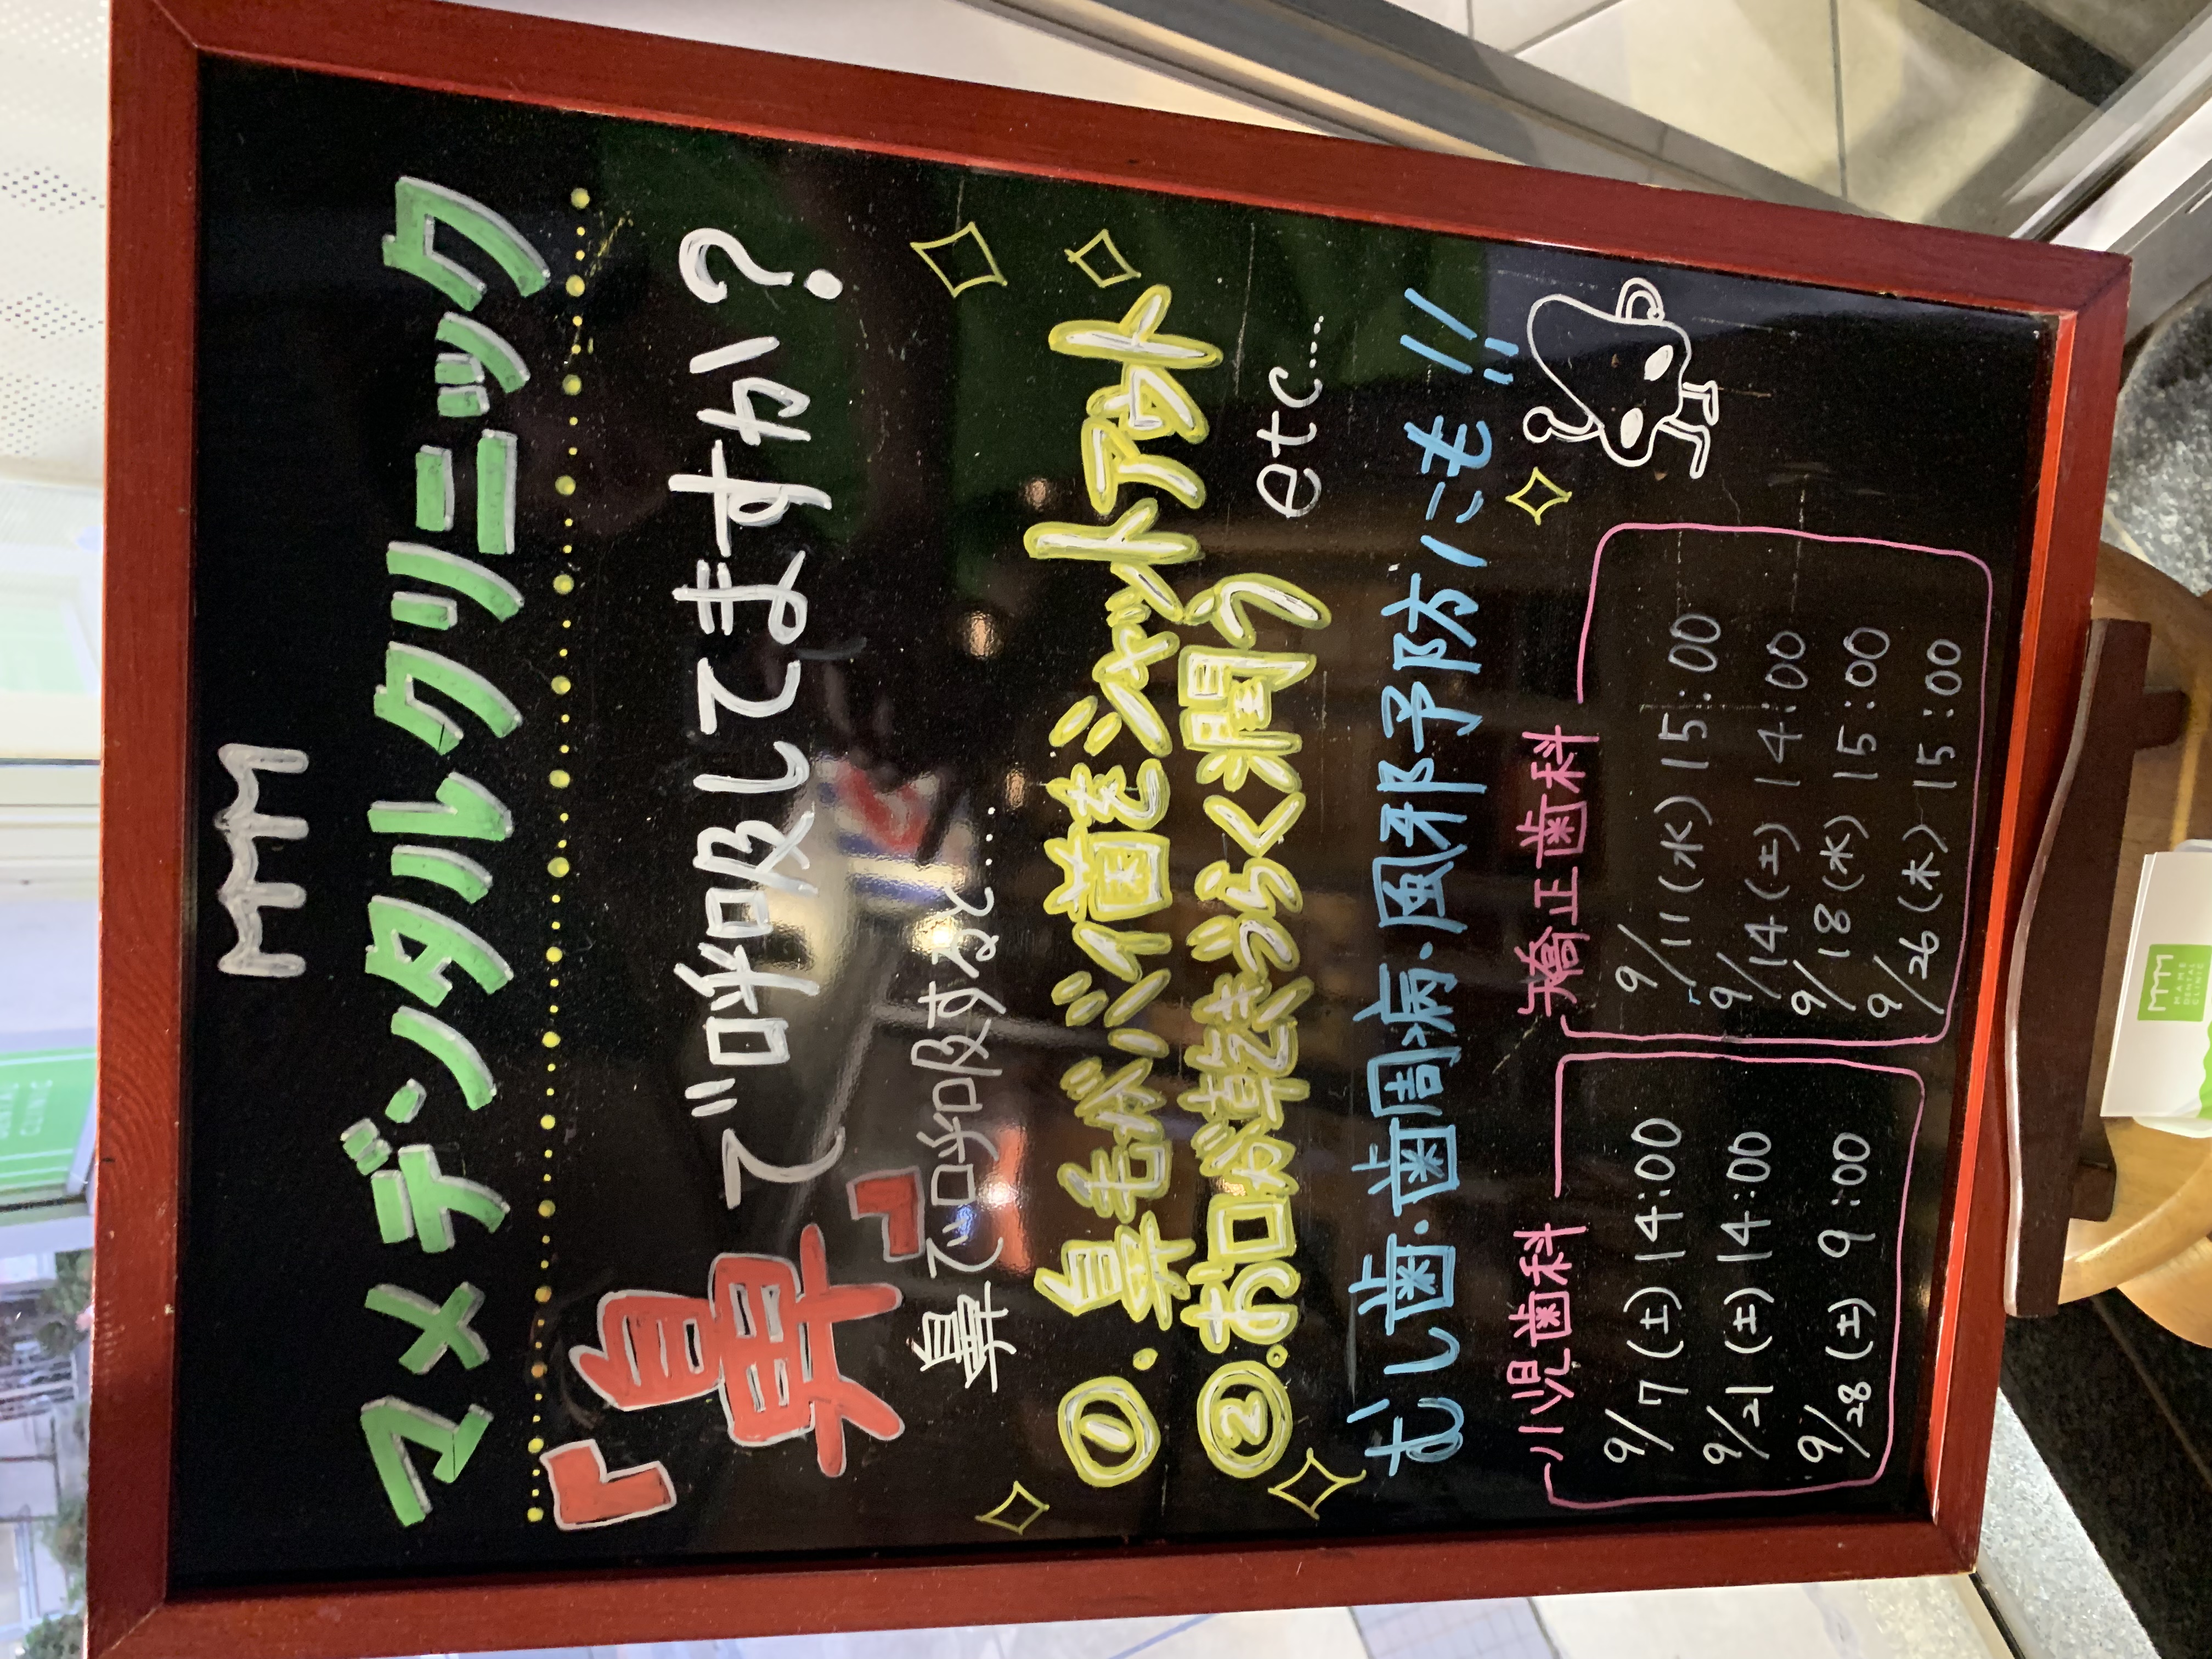 マメデンタルクリニック
『鼻』で呼吸してますか?
鼻で呼吸すると…
①.鼻毛がバイ菌をシャットアウト
②.お口が乾きづらく潤う
etc....
むし歯・歯周病・風邪予防にも!!
小児歯科
9/7(土) 14:00
9/21(土) 14:00
9/28(土) 9:00
矯正歯科
9/11(水) 15:00
9/14(土) 14:00
9/18(水) 15:00
9/26(木) 15:00
MAME
DENTAL
CLINIC